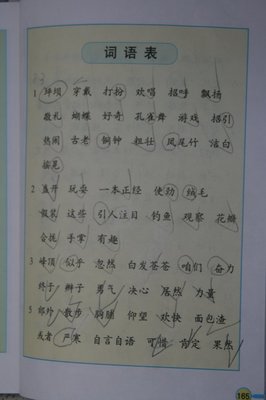 词语表
1 坪坝 穿戴 打扮 欢唱 招呼 飘扬
敬礼 蝴蝶 好奇 孔雀舞 游戏 招引
热闹 古老 铜钟 粗壮 凤尾竹 洁白
摇晃
2 盛开 玩耍 一本正经 使劲 绒毛
假装 这些 引人注目 钓鱼 观察 花瓣
合拢 手掌 有趣
3 峰顶 似乎 忽然 白发苍苍 咱们 奋力
终于 辫子 勇气 决心 居然 力量
5 郊外 散步 胸脯 仰望 欢快 面包渣
或者 严寒 自言自语 可惜 肯定 果然
165